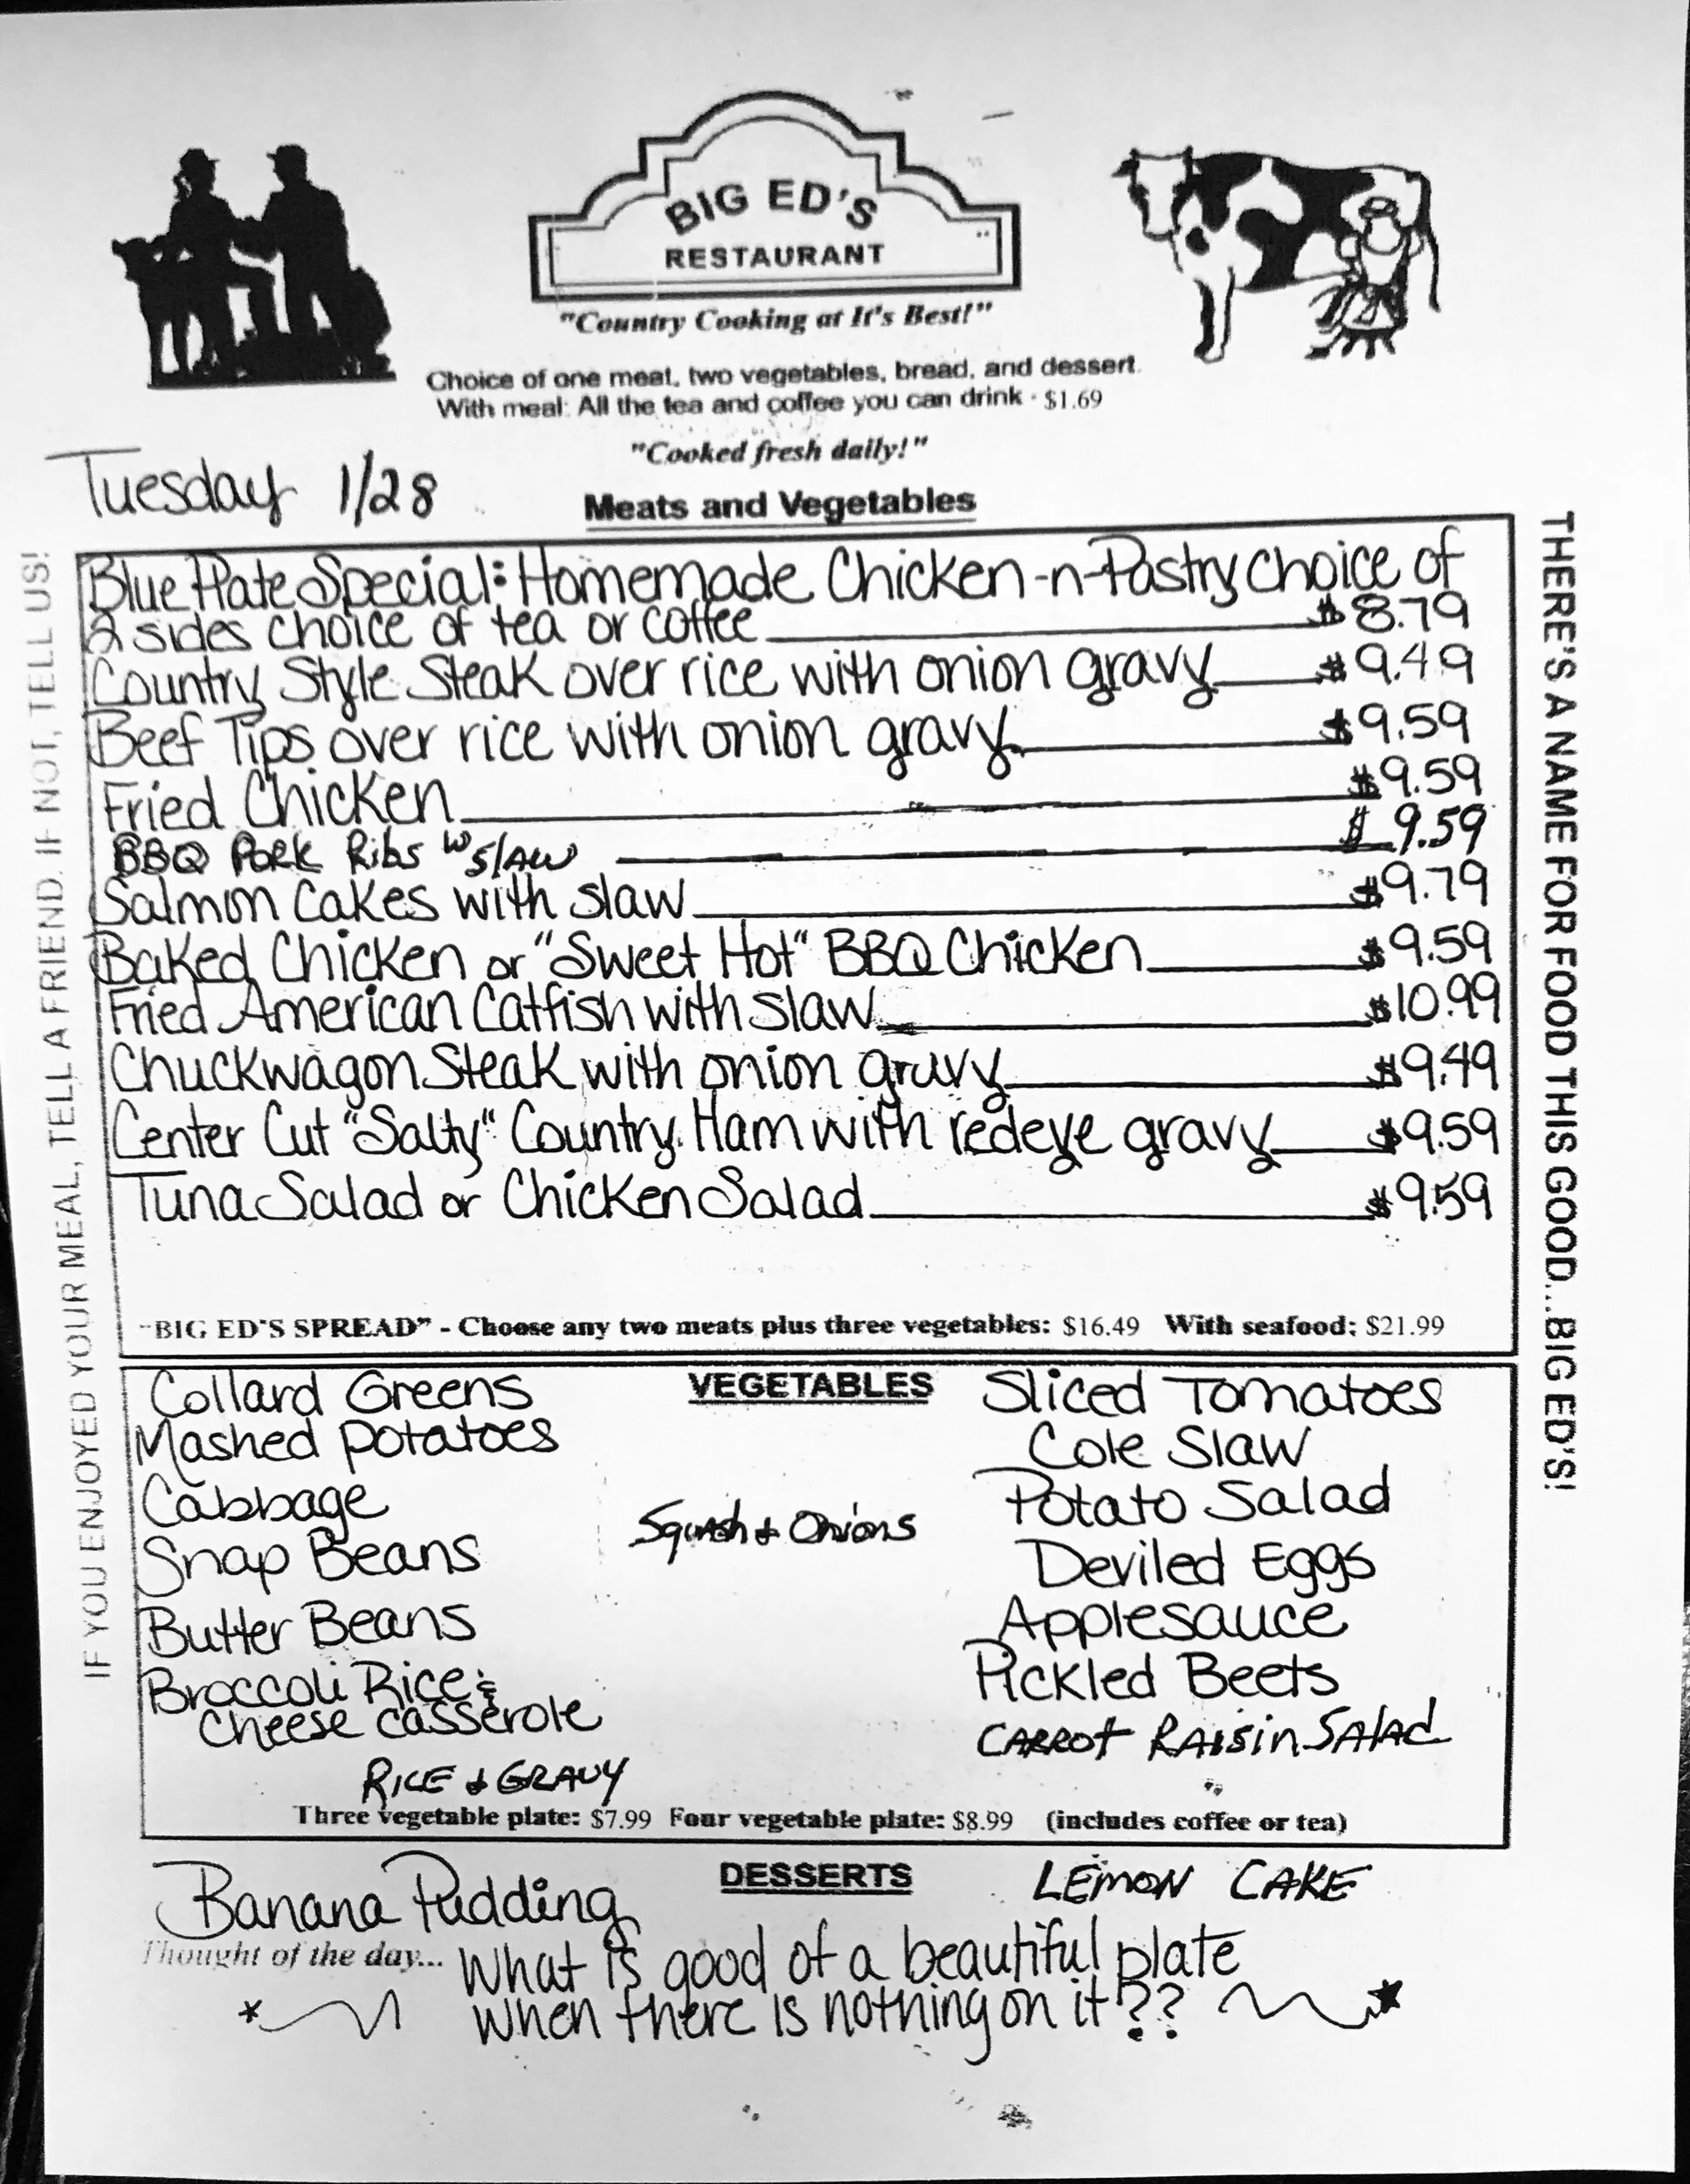 BIG ED'S
RESTAURANT
"Country Cooking at It's Best!"
Choice of one meat, two vegetables, bread, and dessert.
With meal: All the tea and coffee you can drink - $1.69
"Cooked fresh daily!"
Tuesday 1/28
Meats and Vegetables
Blue Plate Special: Homemade Chicken-n-Pastry choice of
2 sides choice of tea or coffee $8.79
Country Style Steak over rice with onion gravy $9.49
Beef Tips over rice with onion gravy $9.59
Fried Chicken $9.59
BBQ Pork Ribs w/ Slaw $9.59
Salmon Cakes with slaw $9.79
Baked Chicken or "Sweet Hot" BBQ Chicken $9.59
Fried American Catfish with slaw $10.99
Chuckwagon Steak with onion gravy $9.49
Center Cut "Salty" Country Ham with redeye gravy $9.59
Tuna Salad or Chicken Salad $9.59
"BIG ED'S SPREAD" - Choose any two meats plus three vegetables: $16.49 With seafood: $21.99
VEGETABLES
Collard Greens
Mashed Potatoes
Cabbage
Snap Beans
Butter Beans
Broccoli Rice &
Cheese casserole
RICE & GRAVY
Squash & Onions
Sliced Tomatoes
Cole Slaw
Potato Salad
Deviled Eggs
Applesauce
Pickled Beets
CARROT RAISIN SALAD
Three vegetable plate: $7.99 Four vegetable plate: $8.99 (includes coffee or tea)
DESSERTS
Banana Pudding
LEMON CAKE
Thought of the day... What is good of a beautiful plate
when there is nothing on it??
IF YOU ENJOYED YOUR MEAL, TELL A FRIEND. IF NOT, TELL US!
THERE'S A NAME FOR FOOD THIS GOOD...BIG ED'S!